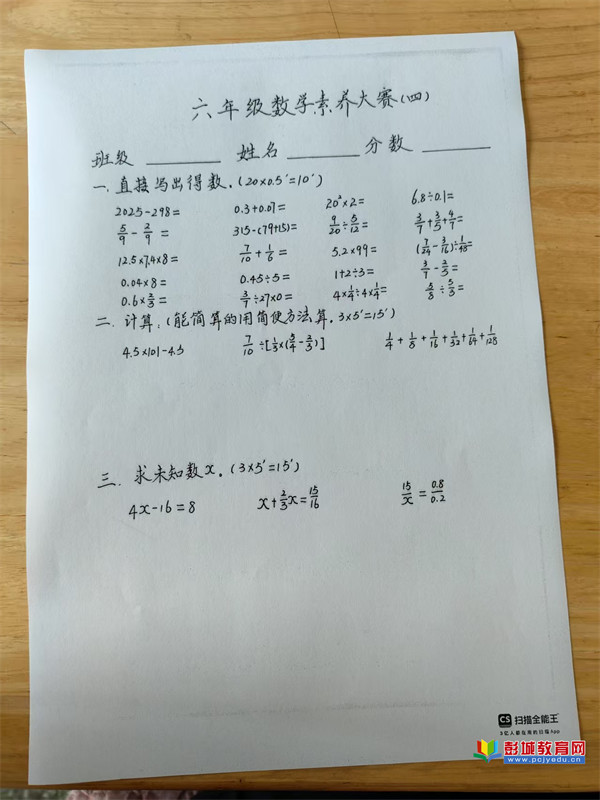 六年级数学素养大赛(四)
班级 ______ 姓名 ______ 分数 ______
一.直接写出得数.(20×0.5'=10')
2025-298= 0.3+0.07= 20²×2= 6.8÷0.1=
5/9-2/9= 315-(79+15)= 9/20÷5/12= 3/7+3/5+4/7=
12.5×7.4×8= 7/10+1/5= 5.2×99= (7/24-3/16)÷1/48=
0.04×8= 0.45÷5= 1+2÷3= 3/7-2/3=
0.6×2/3= 3/7÷27×0= 4×1/4÷4×1/4= 5/8÷5/3=
二.计算:(能简算的用简便方法算.3×5'=15')
4.5×101-4.5 7/10÷[1/3×(3/4-2/3)] 1/4+1/8+1/16+1/32+1/64+1/128
三.求未知数x.(3×5'=15')
4x-16=8 x+2/3x=15/16 15/x=0.8/0.2
CS 扫描全能王
3亿人都在用的扫描App
彭城教育网
www.pcjyedu.cn